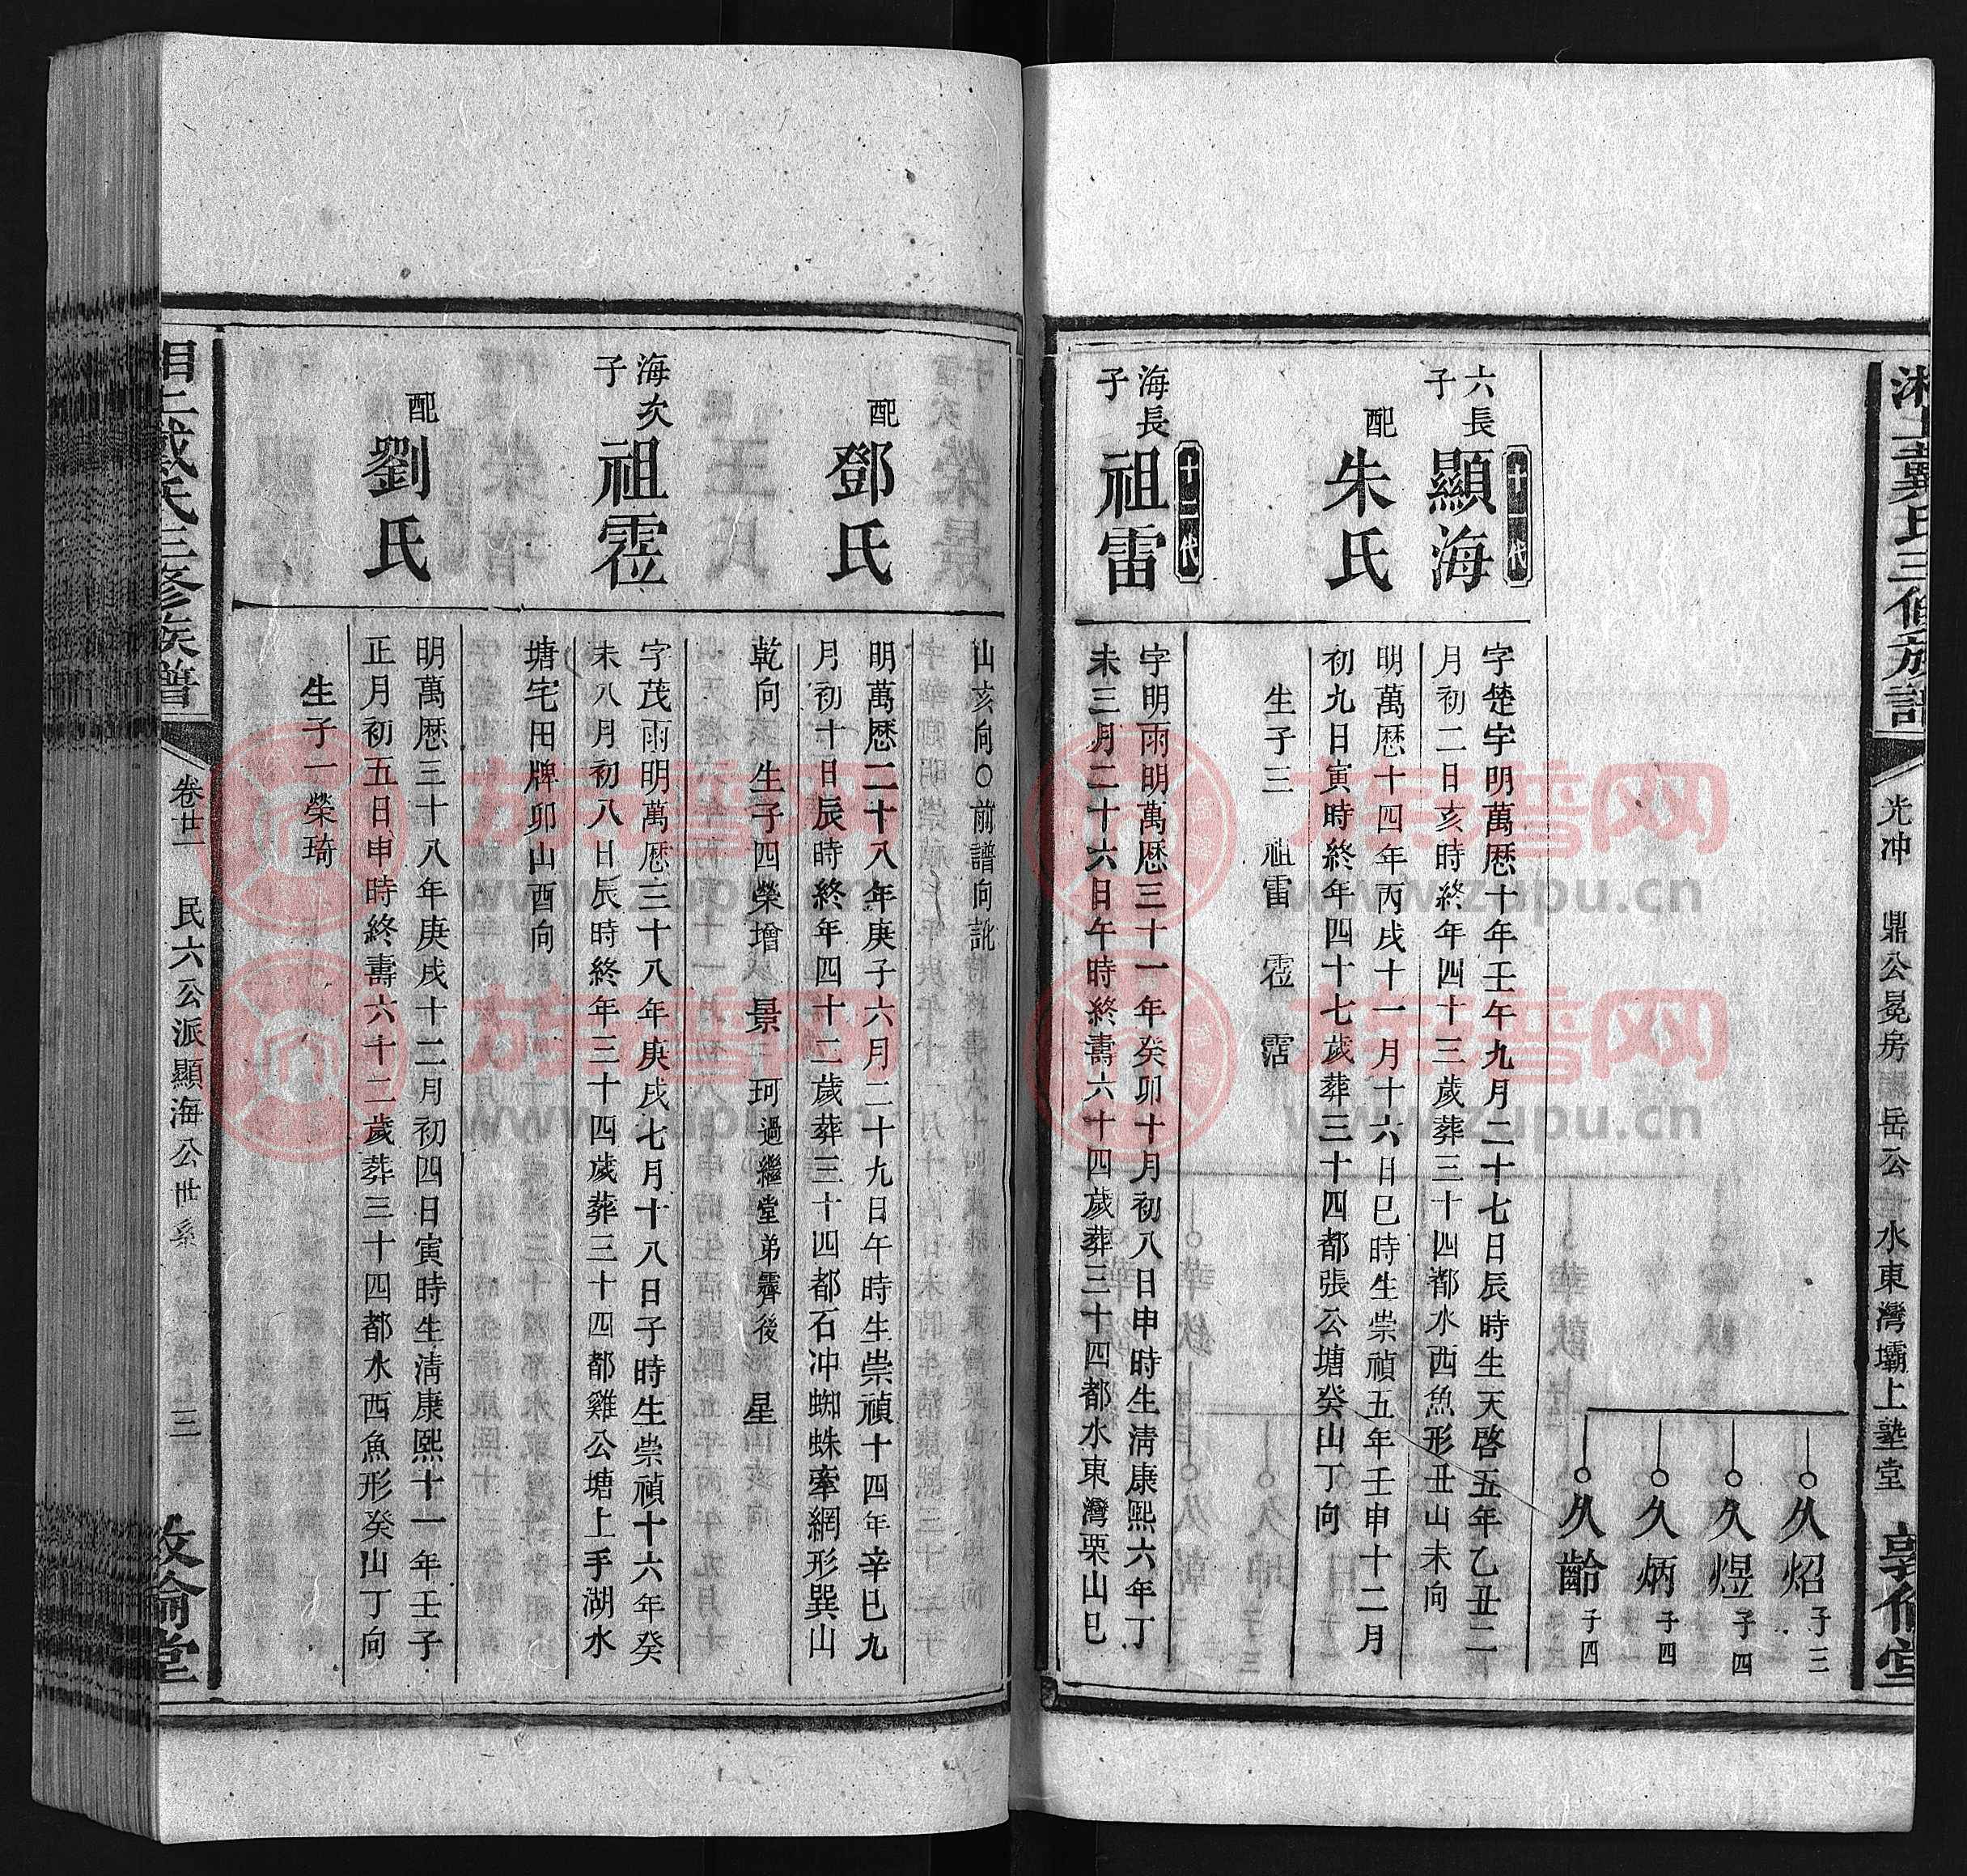 三修族譜
光冲 鼎公冕房 岳公 水東灣壩上塾堂
敦倫堂
久炤 子三
久煜 子四
久炳 子四
久齡 子四
十一代
六長子 顯海
字楚宇明萬歷十年壬午九月二十七日辰時生天啓五年乙丑二
月初二日亥時終年四十三歲葬三十四都水西魚形丑山未向
配 朱氏
明萬歷十四年丙戌十一月十六日巳時生崇禎五年壬申十二月
初九日寅時終年四十七歲葬三十四都張公塘癸山丁向
生子三 祖雷 霑 霑
十二代
海長子 祖雷
字明雨明萬歷三十一年癸卯十月初八日申時生淸康熙六年丁
未三月二十六日午時終壽六十四歲葬三十四都水東灣栗山巳
山亥向○前譜向訛
配 鄧氏
明萬歷二十八年庚子六月二十九日午時生崇禎十四年辛巳九
月初十日辰時終年四十二歲葬三十四都石冲蜘蛛牽網形巽山
乾向 生子四榮增 景 珂過繼堂弟霽後 星
海次子 祖霑
字茂雨明萬歷三十八年庚戌七月十八日子時生崇禎十六年癸
未八月初八日辰時終年三十四歲葬三十四都雞公塘上手湖水
塘宅田牌卯山酉向
配 劉氏
明萬歷三十八年庚戌十二月初四日寅時生淸康熙十一年壬子
正月初五日申時終壽六十二歲葬三十四都水西魚形癸山丁向
生子一榮琦
戴氏三修族譜
卷廿一 民六公派顯海公世系 三
敦倫堂
族譜网
www.zupu.cn
族譜网
www.zupu.cn
族譜网
www.zupu.cn
族譜网
www.zupu.cn